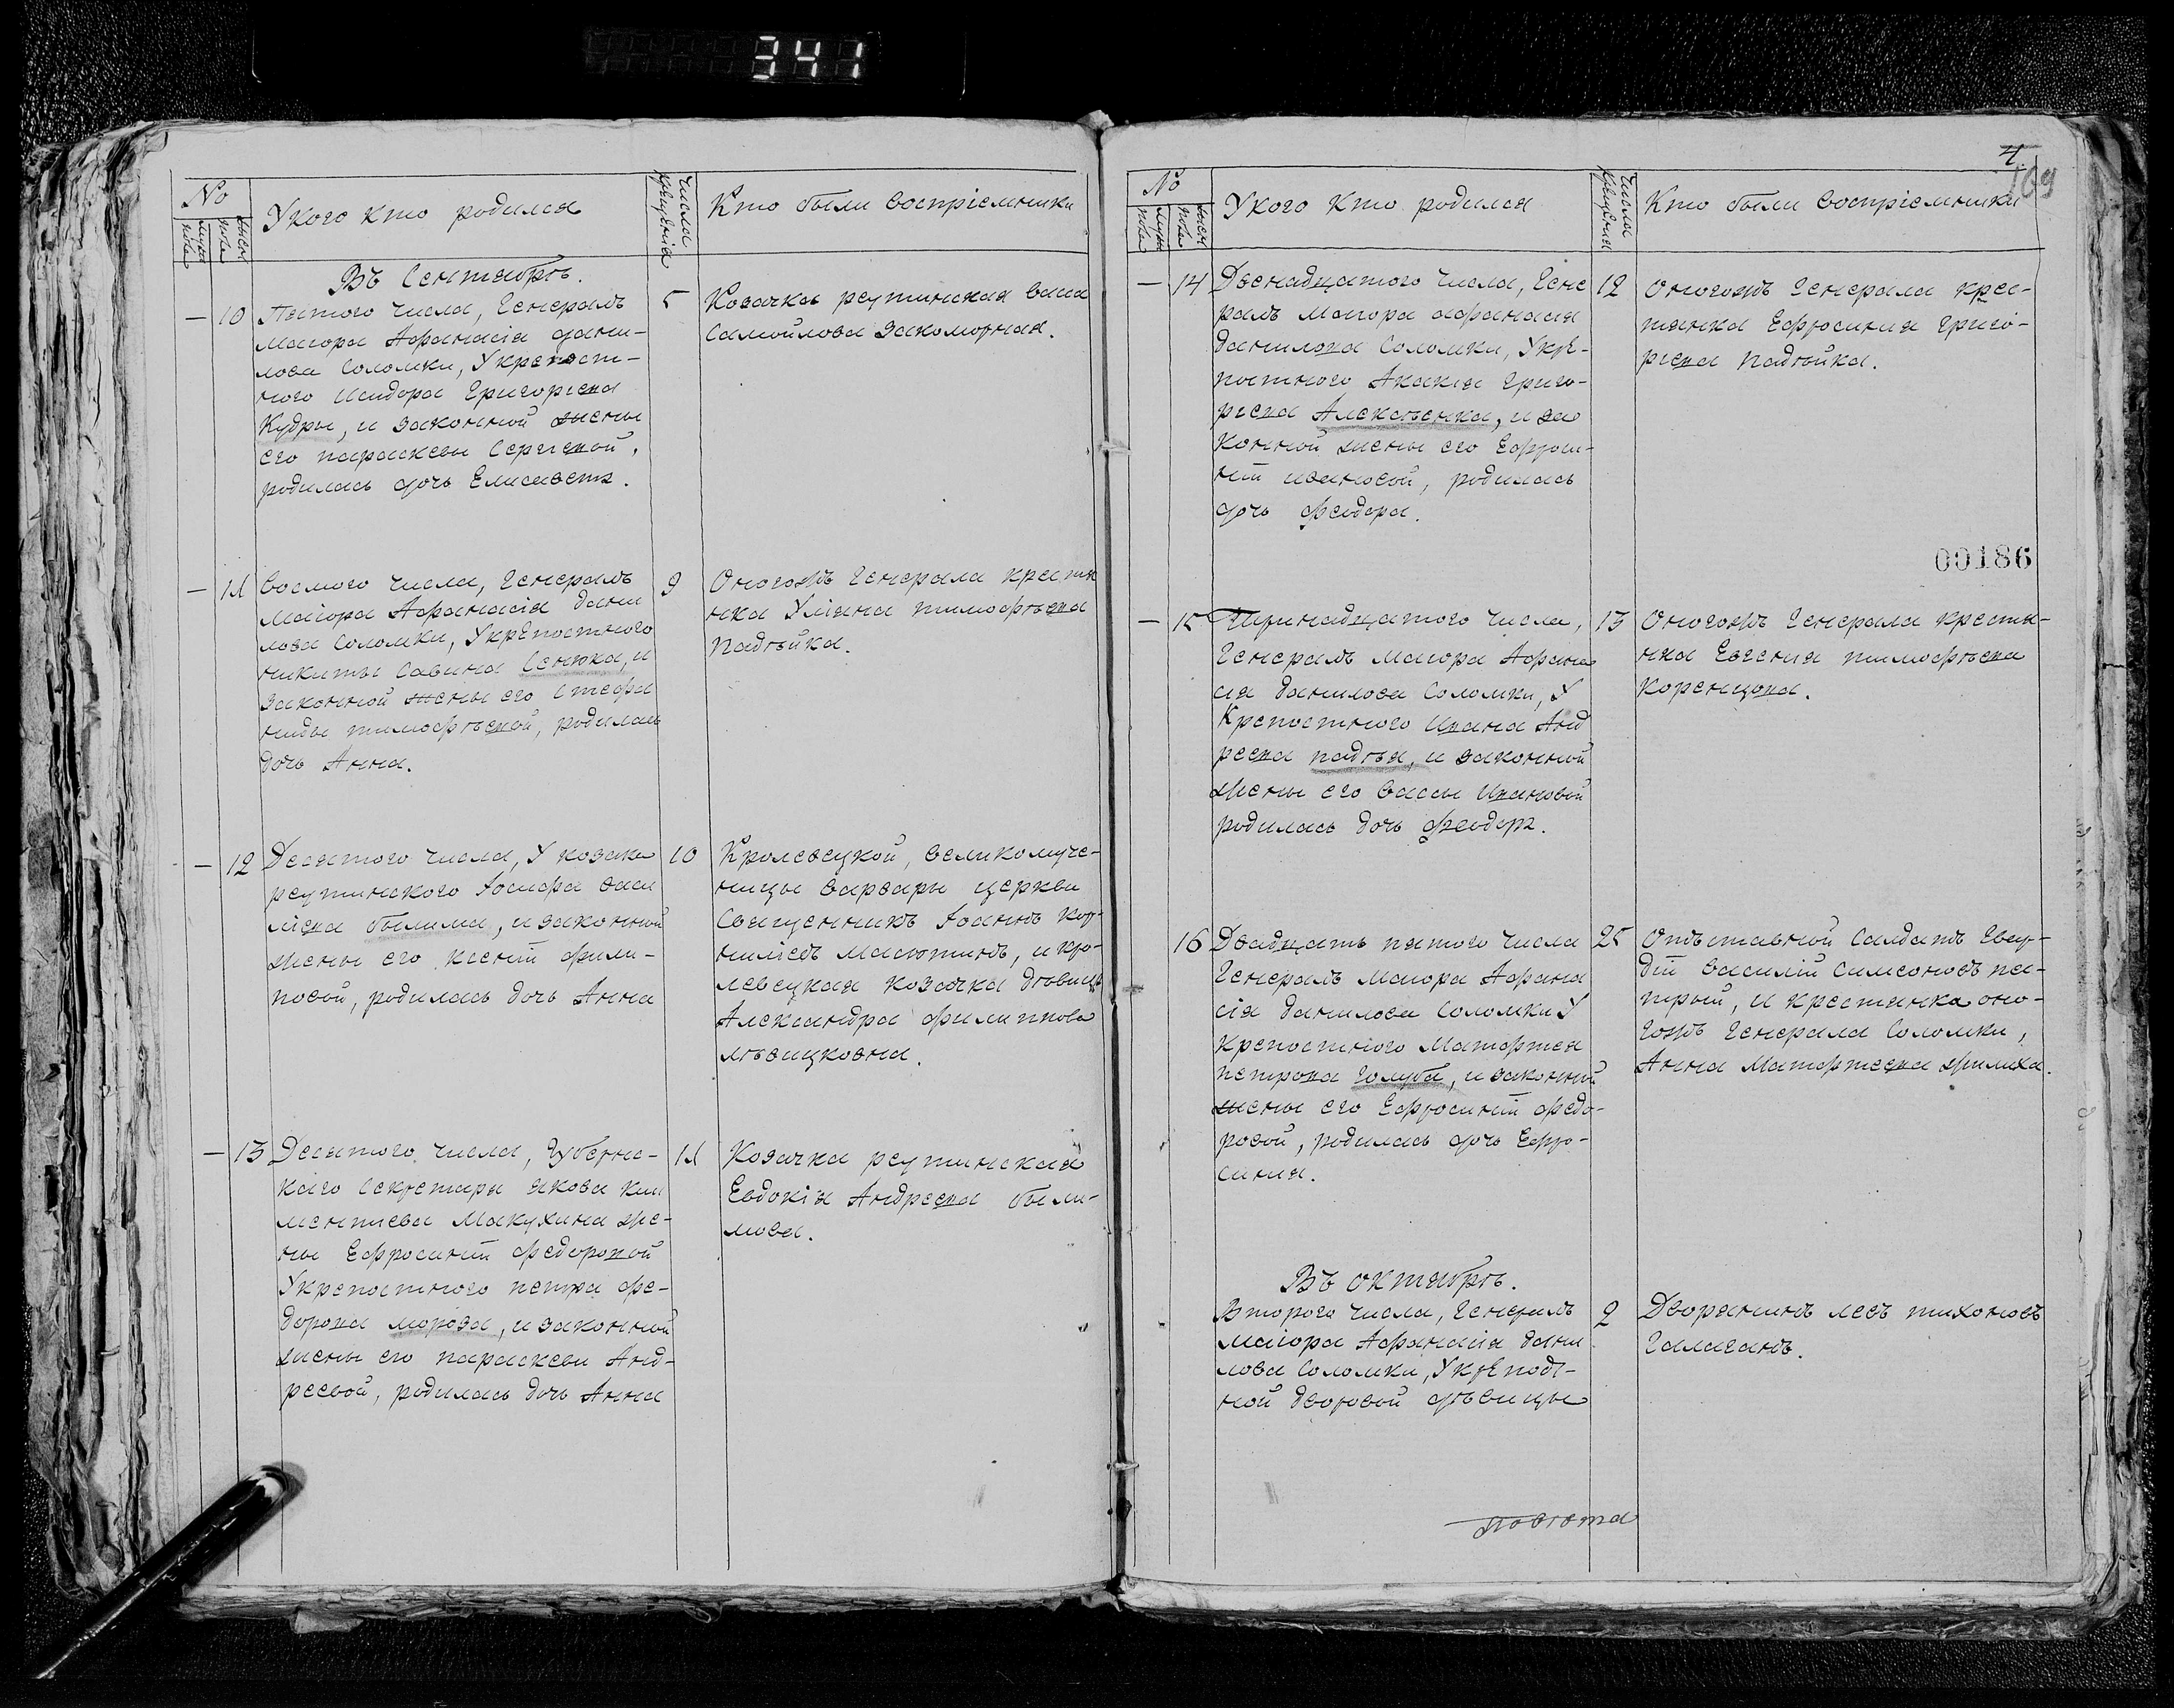 341
No
мужеска
женска
У кого кто родился
Числа крещенія
Кто были воспріемники
Въ Сентябрѣ.
— 10 Пятого числа, Генералъ
Маіора Афанасія Дани-
лова Соломки, у крѣпост-
ного Исидора Григоріева
Кудры, и законной жены
его параскевы Сергіевой,
родилась дочь Елисаветъ.
5
Козачка реутинская васса
Самойлова закоморная.
— 11 Восмого числа, Генералъ
Маіора Афанасія Дани
лова Соломки, у крѣпостного
никиты Савина Сенюка, и
законной жены его Стефа
ниды тимофѣевой, родилась
дочь Анна.
9
Оногожъ Генерала крестя
нка Уліана тимофѣева
Падѣйка.
— 12 Десятого числа, у козака
реутинского Іосифа васи
ліева былима, и законной
жены его ксеніи фили-
повой, родилась дочь Анна
10
Кролевецкой, великомуче-
ницы варвары церкви
Священникъ Іоаннъ кор-
ниліевъ Маютинъ, и кро-
левецкая козачка дѣвица
Александра филиппова
лѣвицковна.
— 13 Десятого числа, Губернс-
каго Секретаря якова кли
ментіева Макухина же-
ны Ефросиніи федоровой
У крепостного петра фе-
дорова мороза, и законной
жены его параскеви Анд-
реевой, родилась дочь Анна
11
Козачка реутинская
Евдокія Андреева были-
мова.
4.
109
No
мужеска
женска
У кого кто родился
Числа крещенія
Кто были воспріемники
— 14 Двенадцатого числа, Гене
ралъ Маіора афанасія
данилова Соломки, У крѣ-
постного Акакія григо-
риева Алексѣенка, и за
конной жены его Ефроси-
ніи ивановой, родилась
дочь феодора.
12
Оногожъ Генерала крес-
тянка Ефросинія григо-
риева Падѣйка.
00186
— 15 Тринадцатого числа,
Генералъ Маіора Афана
сія данилова Соломки, У
крепостного Ивана Анд
реева падѣя, и законной
жены его вассы Ивановой
родилась дочь феодора.
13
Оногожъ Генерала крестя-
нка Евгенія тимофѣева
Коренцова.
16 Двадцать пятого числа
Генералъ Маіора Афана
сія данилова Соломки У
крепостного Матфтея
петрова голуба, и законной
жены его Ефросиніи федо-
ровой, родилась дочь Ефро-
синія.
25
Отъставной Салдатъ
Василій Симеоновъ
и крестянка оно-
гожъ Генерала Соломки,
Анна Матфтеева
Въ октябрѣ.
Второго числа, Генералъ
Маіора Афанасія дани
лова Соломки, У крѣпост-
ной дворовой дѣвицы
2
Дворянинъ левъ тихоновъ
Галаганъ.